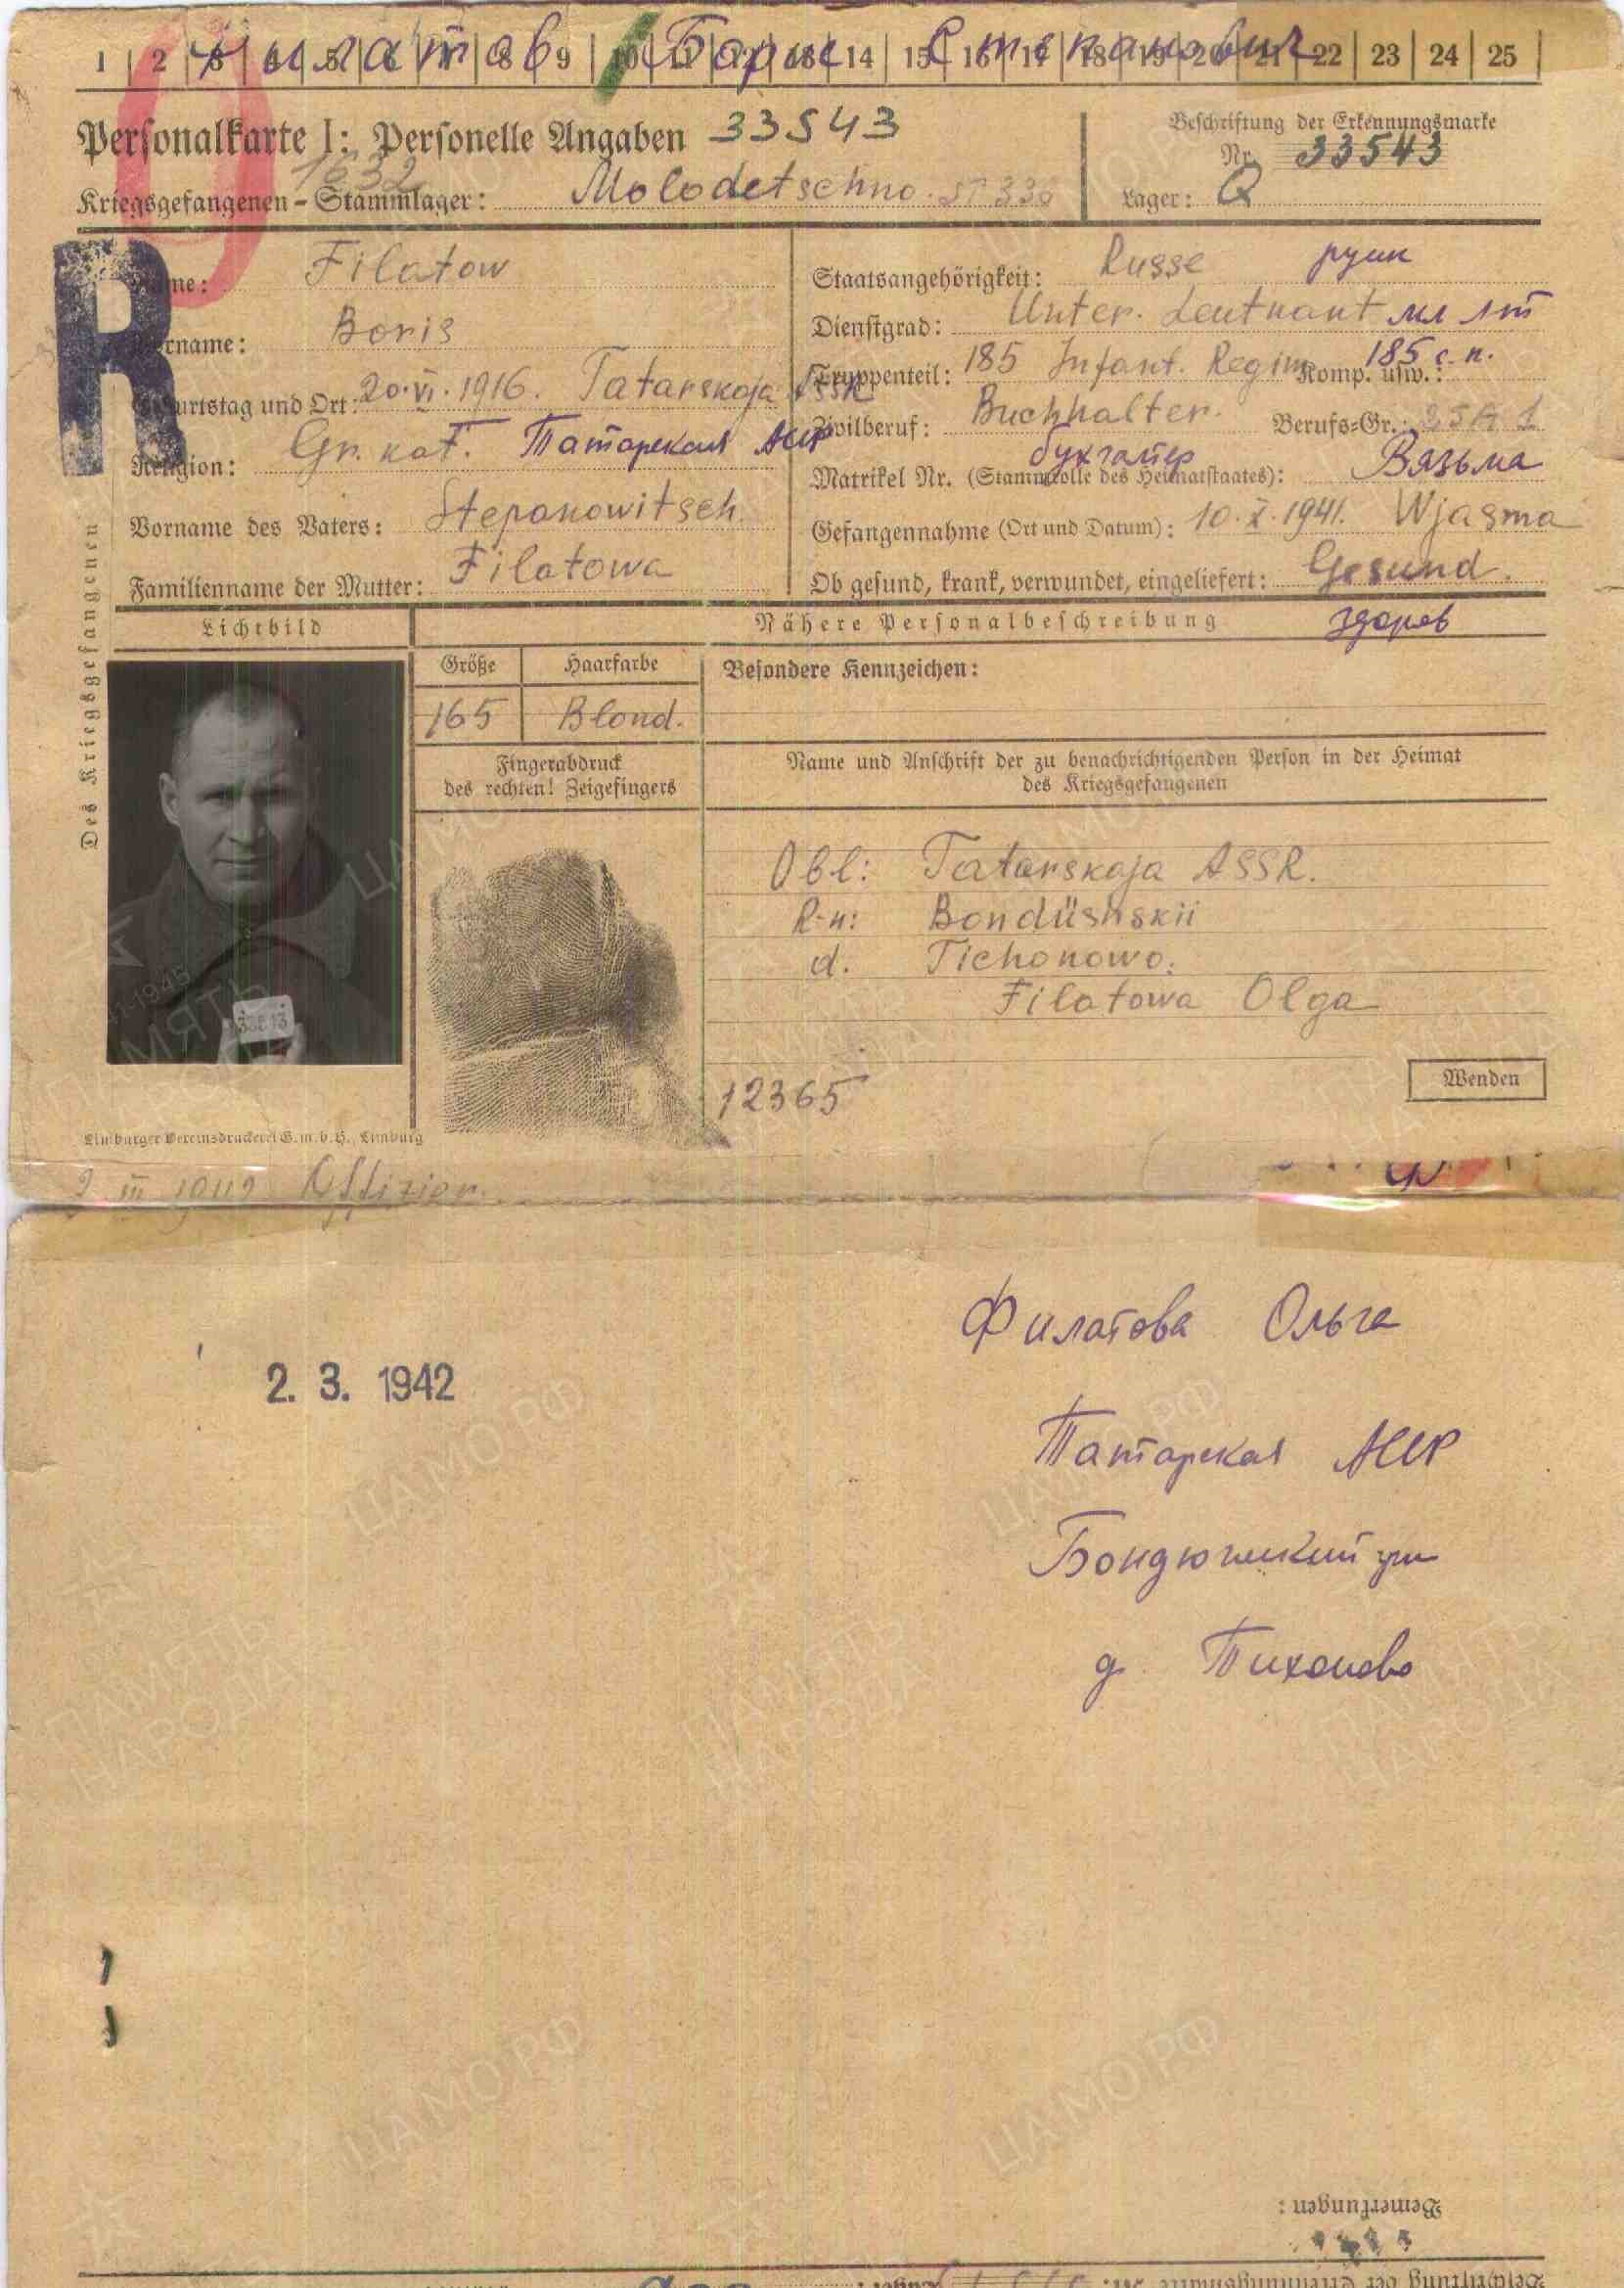 1 2 3 4 5 6 7 8 9 10 11 12 13 14 15 16 17 18 19 20 21 22 23 24 25
Филатов Борис Степанович
Personalkarte I: Personelle Angaben 33543
Beschriftung der Erkennungsmarke
Nr. 33543
1632
Kriegsgefangenen-Stammlager: Molodetschno. ST 336
Lager: Q
R
Des Kriegsgefangenen
Name: Filatow
Vorname: Boris
Geburtstag und Ort: 20.VI.1916. Tatarskaja ASSR
Religion: Gr. kat. Татарская АССР
Vorname des Vaters: Stepanowitsch
Familienname der Mutter: Filatowa
Staatsangehörigkeit: Russe русск
Dienstgrad: Unter. Leutnant мл лт
Truppenteil: 185 Infant. Regim Komp. usw.: 185 с.п.
Zivilberuf: Buchhalter. Berufs-Gr.: 25A 1
бухгалтер
Matrikel Nr. (Stammrolle des Heimatstaates): Вязьма
Gefangennahme (Ort und Datum): 10.X.1941. Wjasma
Ob gesund, krank, verwundet, eingeliefert: Gesund.
Lichtbild
Nähere Personalbeschreibung здоров
Größe Haarfarbe
Besondere Kennzeichen:
165 Blond.
Fingerabdruck
des rechten! Zeigefingers
Name und Anschrift der zu benachrichtigenden Person in der Heimat
des Kriegsgefangenen
Obl: Tatarskaja ASSR.
R-n: Bondüshskii
d. Tichonowo.
Filatowa Olga
33543
12365
Wenden
Limburger Vereinsdruckerei G.m.b.H., Limburg
2 III 1942 Offizier
Филатова Ольга
2. 3. 1942
Татарская АССР
Бондюжский
д. Тихоново
Bemerkungen:
Beschriftung der Erkennungsmarke Nr.
Lager:
ЦАМО РФ
ПАМЯТЬ
НАРОДА